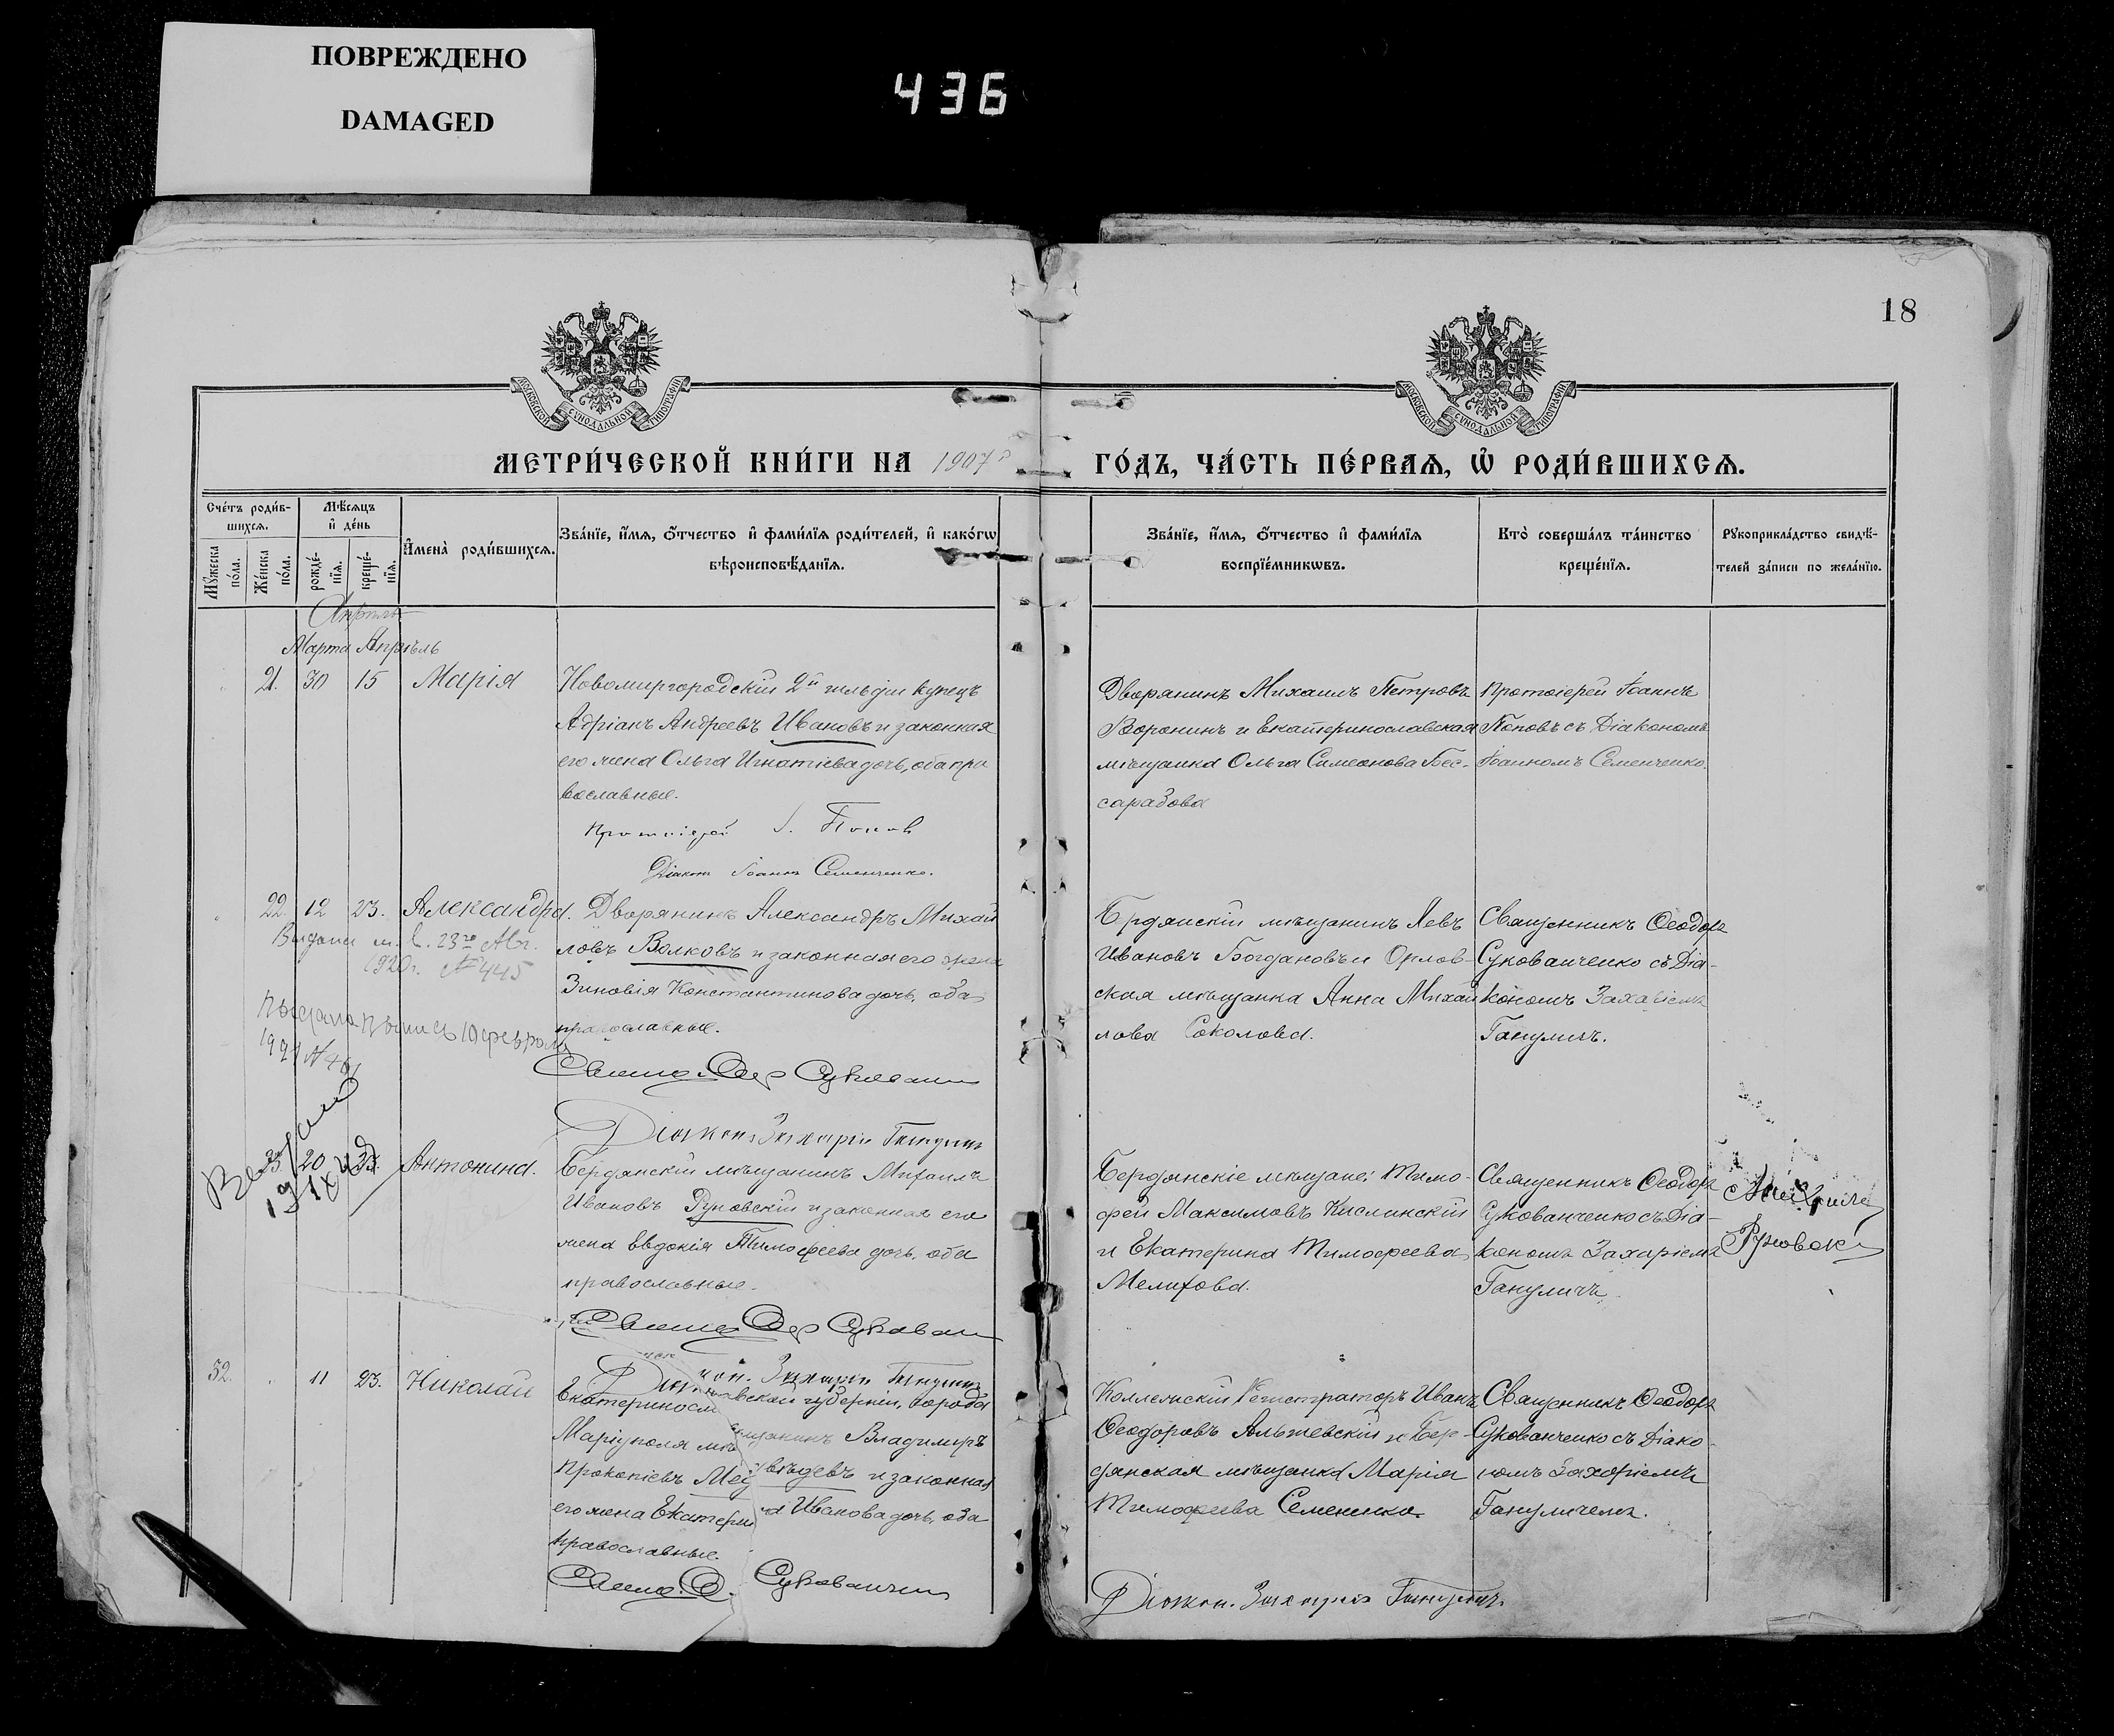 ПОВРЕЖДЕНО
DAMAGED
436
18
МОСКОВСКОЙ СѴНОДАЛЬНОЙ ТИПОГРАФІИ
МОСКОВСКОЙ СѴНОДАЛЬНОЙ ТИПОГРАФІИ
МЕТРИ́ЧЕСКОЙ КНИ́ГИ НА 1907
ГО́ДЪ, ЧА́СТЬ ПЕ́РВАѦ, Ѡ҆ РОДИ́ВШИХСѦ.
Сче́тъ роди́в-
шихсѧ.
Мꙋ́жеска
по́ла.
Же́нска
по́ла.
Мѣ́сѧцъ
и҆ де́нь
рожде́-
нїѧ.
креще́-
нїѧ.
И҆мена̀ роди́вшихсѧ.
Зва́нїе, и҆́мѧ, ѻ҆́тчество и҆ фами́лїѧ роди́телей, и҆ како́гѡ
вѣроисповѣ́данїѧ.
Зва́нїе, и҆́мѧ, ѻ҆́тчество и҆ фами́лїѧ
воспрїе́мникѡвъ.
Кто̀ соверша́лъ та́инство
креще́нїѧ.
Рꙋкоприкла́дство свидѣ́-
телей за́писи по жела́нїю.
Апрѣль
Марта Апрѣль
21. 30 15 Марія
Новомиргородскій 2й гильдіи купецъ
Адріанъ Андреевъ Ивановъ и законная
его жена Ольга Игнатіева дочь, оба пра
вославные.
Протоіерей І. Поповъ
Діаконъ Іоаннъ Семенченко.
Дворянинъ Михаилъ Петровъ
Воронинъ и Екатеринославская
мѣщанка Ольга Симеонова Бес-
сарабова
Протоіерей Іоаннъ
Поповъ съ Діакономъ
Іоанномъ Семенченко.
22. 12 23. Александра.
Выдана м. в. 23го Авг.
1920г. № 445
1921
Дворянинъ Александръ Михай
ловъ Волковъ и законная его жена
Зиновія Константинова дочь, оба
православные.
Діаконъ Захарій Ганулич
Бердянскій мѣщанинъ Левъ
Ивановъ Богдановъ и Орлов-
ская мѣщанка Анна Михай
лова Соколова.
Священникъ Ѳеодоръ
Сукованченко съ Діа-
кономъ Захаріемъ
Гануличъ.
23. 20 23. Антонина.
Бердянскій мѣщанинъ Михаилъ
Ивановъ Руновскій и законная его
жена Евдокія Тимоѳеева дочь, оба
православные.
Бердянскіе мѣщане: Тимо-
фей Максимовъ Кислинскій
и Екатерина Тимоѳеева
Мелихова.
Священникъ Ѳеодоръ
Сукованченко съ Діа-
кономъ Захаріемъ
Гануличъ.
32. 11 23. Николай
Діакон. Захарій Ганулич
Екатеринославской губерніи, города
Маріуполя мѣщанинъ Владимиръ
Прокопіевъ Медвѣдевъ и законная
его жена Екатерина Иванова дочь, оба
православные.
Коллежскій Регистраторъ Иванъ
Ѳеодоровъ Альшевскій и Бер-
дянская мѣщанка Марія
Тимоѳеева Семененко.
Священникъ Ѳеодоръ
Сукованченко съ Діако-
номъ Захаріемъ
Гануличемъ.
Діакон. Захарій Ганулич.